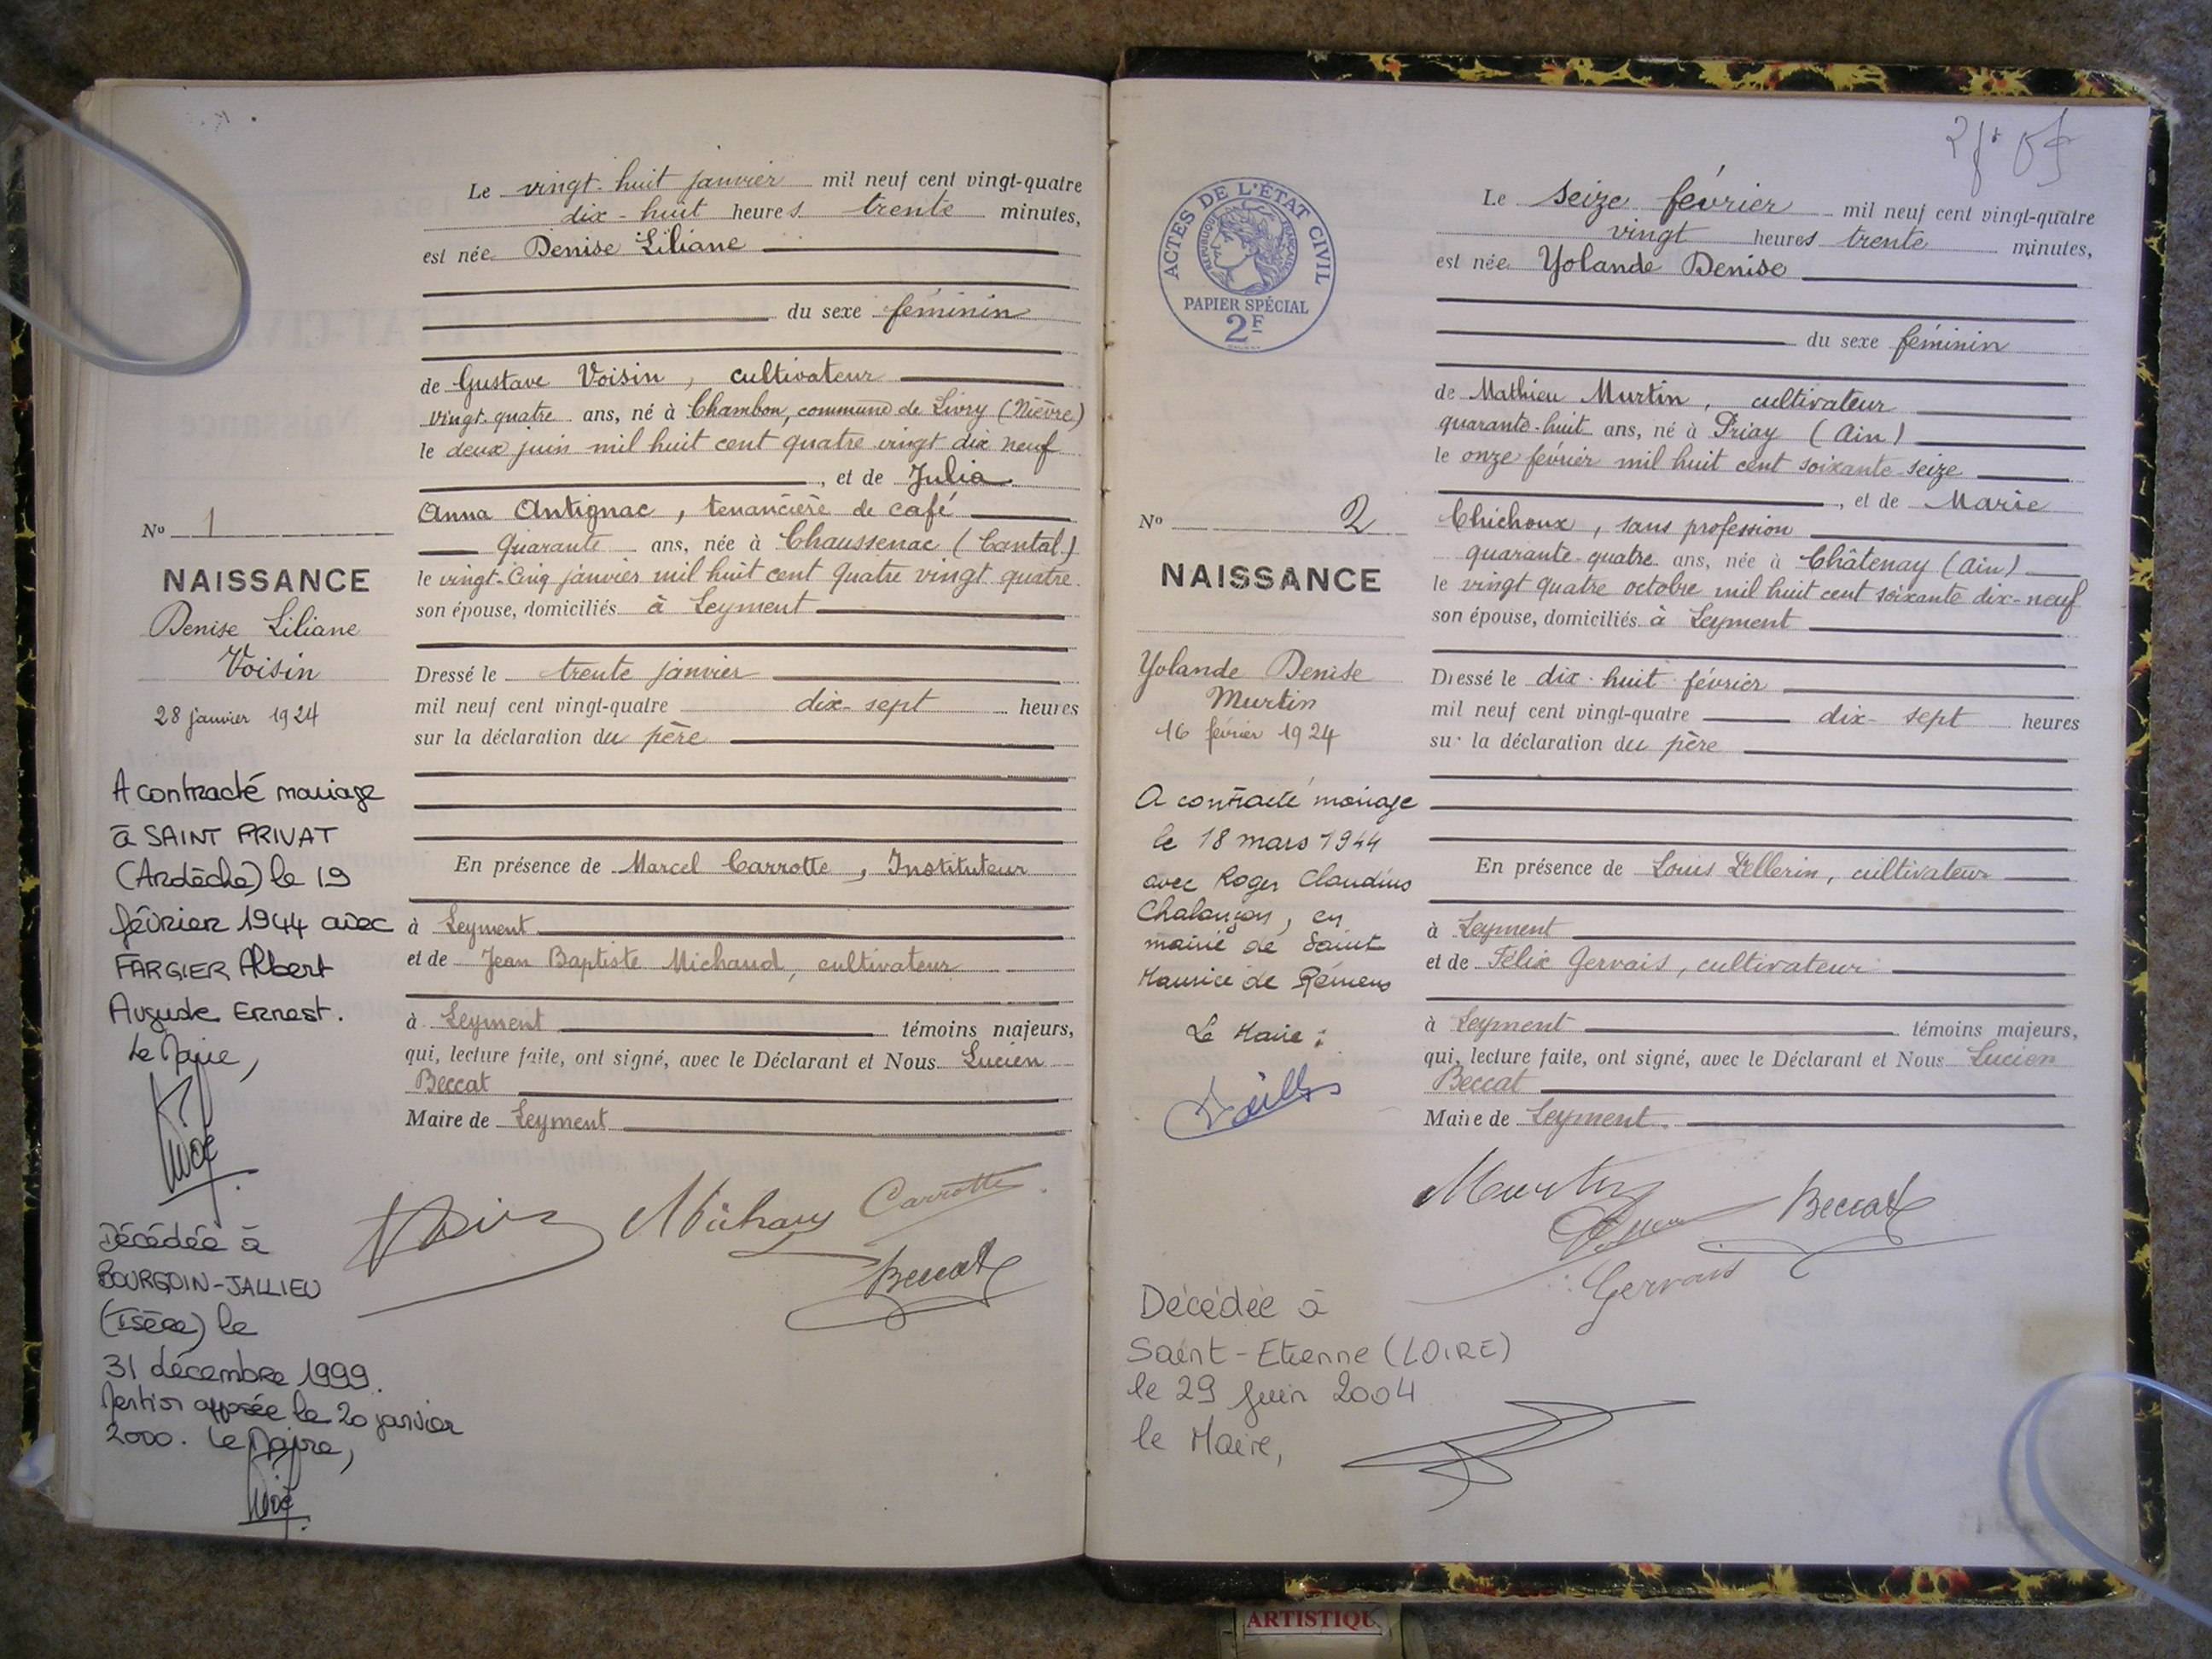 Le vingt-huit janvier mil neuf cent vingt-quatre
dix-huit heures trente minutes,
est née Denise Liliane
du sexe féminin
de Gustave Voisin, cultivateur
vingt-quatre ans, né à Chambon, commune de Livry (Nièvre)
le deux juin mil huit cent quatre vingt dix neuf
, et de Julia
Anna Antignac, tenancière de café
quarante ans, née à Chaussenac (Cantal)
le vingt-cinq janvier mil huit cent quatre vingt quatre
son épouse, domiciliés à Leyment
Dressé le trente janvier
mil neuf cent vingt-quatre dix-sept heures
sur la déclaration du père
En présence de Marcel Carrotte, Instituteur
à Leyment
et de Jean Baptiste Michaud, cultivateur
à Leyment témoins majeurs,
qui, lecture faite, ont signé, avec le Déclarant et Nous Lucien
Beccat
Maire de Leyment
Michaud Carrotte
Beccat
No 1
NAISSANCE
Denise Liliane
Voisin
28 janvier 1924
A contracté mariage
à SAINT PRIVAT
(Ardèche) le 19
février 1944 avec
FARGIER Albert
Auguste Ernest.
Le Maire,
Décédée à
BOURGOIN-JALLIEU
(Isère) le
31 décembre 1999.
Mention apposée le 20 janvier
2000. Le Maire,
ACTES DE L'ÉTAT CIVIL
RÉPUBLIQUE FRANÇAISE
PAPIER SPÉCIAL
2F
Le seize février mil neuf cent vingt-quatre
vingt heures trente minutes,
est née Yolande Denise
du sexe féminin
de Mathieu Murtin, cultivateur
quarante-huit ans, né à Priay (Ain)
le onze février mil huit cent soixante seize
, et de Marie
Chichoux, sans profession
quarante-quatre ans, née à Châtenay (Ain)
le vingt quatre octobre mil huit cent soixante dix-neuf
son épouse, domiciliés à Leyment
Dressé le dix-huit février
mil neuf cent vingt-quatre dix-sept heures
sur la déclaration du père
En présence de Louis Pellerin, cultivateur
à Leyment
et de Félix Gervais, cultivateur
à Leyment témoins majeurs,
qui, lecture faite, ont signé, avec le Déclarant et Nous Lucien
Beccat
Maire de Leyment.
Murtin Beccat
Gervais
No 2
NAISSANCE
Yolande Denise
Murtin
16 février 1924
A contracté mariage
le 18 mars 1944
avec Roger Claudius
Chalançon, en
mairie de Saint
Maurice de Rémens
Le Maire :
Décédée à
Saint-Etienne (LOIRE)
le 29 Juin 2004
le Maire,
ARTISTIQU